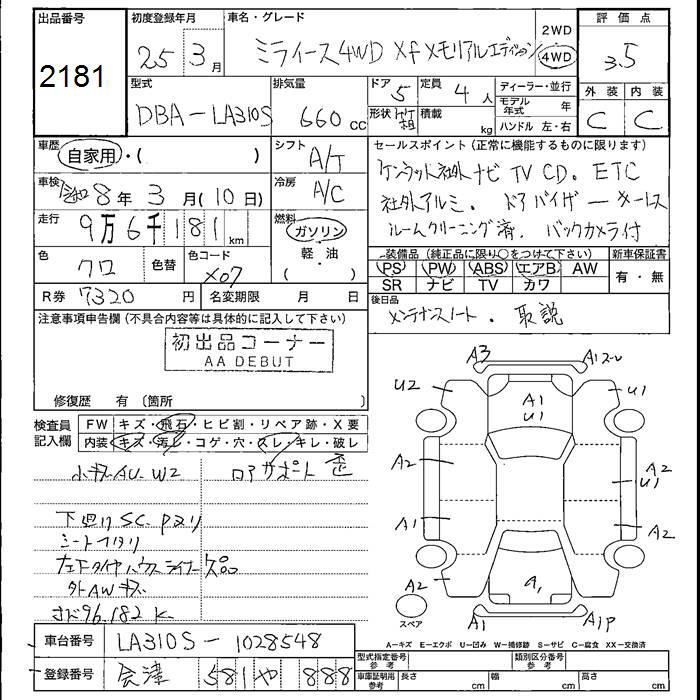 出品番号 初度登録年月 車名・グレード 2WD 評価点
2181
25年 3月 ミライース4WD Xf メモリアルエディション 4WD 3.5
型式 排気量 ドア 5 定員 4人 ディーラー・並行 外装 内装
DBA-LA310S 660cc 形状 積載 kg モデル年式 年 C C
ハンドル 左・右
車歴 自家用・( ) シフト A/T セールスポイント(正常に機能するものに限ります)
車検 令和8年 3月(10日) 冷房 A/C 社外ナビ TV CD. ETC
走行 9万6千181km 燃料 ガソリン 社外アルミ. ドアバイザー キーレス
軽・油 ルームクリーニング済. バックカメラ付
( )
色 クロ 色替 色コード X07 装備品(純正品に限り○をつけて下さい) 新車保証書
PS PW ABS エアB AW 有・無
SR ナビ TV カワ
R券 7320円 名変期限 月 日 後日品
メンテナンスノート. 取説
注意事項申告欄(不具合内容等は具体的に記入して下さい)
初出品コーナー
AA DEBUT
修復歴 有〔箇所 〕
検査員記入欄 FW キズ・飛石・ヒビ割・リペア跡・X要
内装 キズ・汚レ・コゲ・穴・スレ・キレ・破レ
小キズAU. W2 ロアサポート 歪
下廻りSC. Pヌリ
シートヘタリ
左下タイヤハウスライナー欠品
外AWキズ
96,182K
A3 A1
U2 A1 U1 U1
A2 A2 U1
A1 A2
A2 A1
スペア A1 A1P
A-キズ E-エクボ U-凹み W-補修跡 S-サビ C-腐食 XX-交換済
車台番号 LA310S-1028548
登録番号 会津 581 や 888
型式指定番号 参考 類別区分番号 参考
車庫証明用 参考 長さ cm 幅 cm 高さ cm